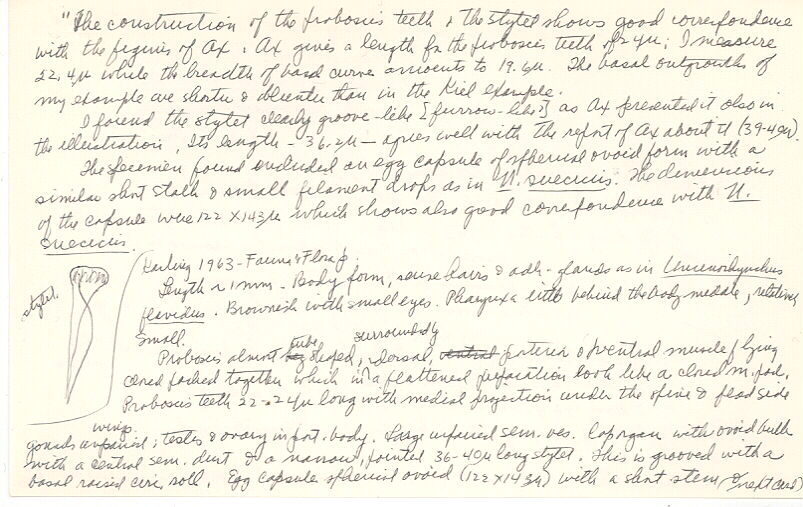 "The construction of the proboscis teeth & the stylet shows good correspondence
with the figures of Ax. Ax gives a length for the proboscis teeth of 24µ; I measure
22.4µ while the breadth of basal curve amounts to 19.6µ. The basal outgrowths of
my example are shorter & blunter than in the Kiel example.
I found the stylet clearly groove-like [furrow-like?] as Ax presented it also in
the illustration. Its length - 36.2µ - agrees well with the report of Ax about it (39-40µ).
The specimen found included an egg capsule of spherical ovoid form with a
similar short stalk & small filament drops as in U. suecicus. The dimensions
of the capsule were 122 x 143µ which shows also good correspondence with U.
suecicus.
stylet
Karling 1963 - Fauna & Flora p.
Length ~ 1mm. Body form, sense hairs & adh. glands as in Uncinorhynchus
flavidus. Brownish with small eyes. Pharynx a little behind the body middle, relatively
small.
Proboscis almost tube shaped, dorsal, ventral surrounded by & ventral muscle flying
closed packed together which in a flattened preparation look like a closed m.
Proboscis teeth 22-24µ long with medial projection under the spine & flad side
gonads unpaired; testes & ovary in post. body. Large unpaired sem. ves. Cop organ with ovoid bulb
with a central sem. duct & a narrow, pointed 36-40µ long stylet. This is grooved with a
basal raised circ. roll. Egg capsule spherical ovoid (122 x 143µ) with a short stem (next card)